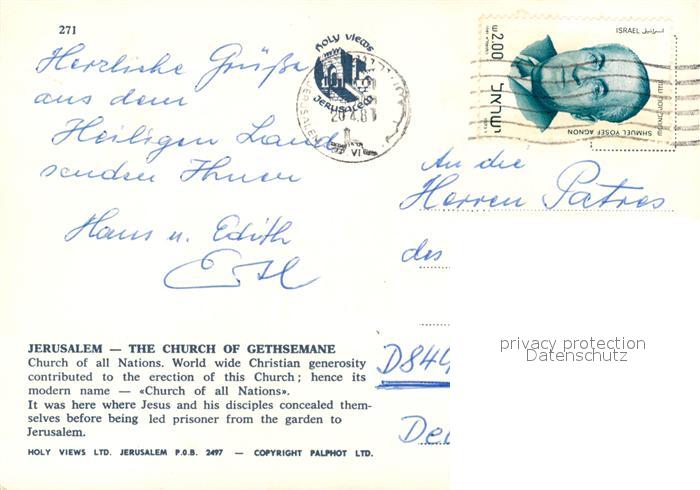 271
HOLY VIEWS
JERUSALEM
Herzliche Grüße
aus dem
Heiligen Land
senden Ihnen
Hans u. Edith
JERUSALEM
20 4.8
VI
ISRAEL اسرائيل
₪ 2.00
ישראל
SHMUEL YOSEF AGNON
An die
Herren Patres
des
D844
De
privacy protection
Datenschutz
JERUSALEM — THE CHURCH OF GETHSEMANE
Church of all Nations. World wide Christian generosity
contributed to the erection of this Church; hence its
modern name — «Church of all Nations».
It was here where Jesus and his disciples concealed them-
selves before being led prisoner from the garden to
Jerusalem.
HOLY VIEWS LTD. JERUSALEM P.O.B. 2497 — COPYRIGHT PALPHOT LTD.